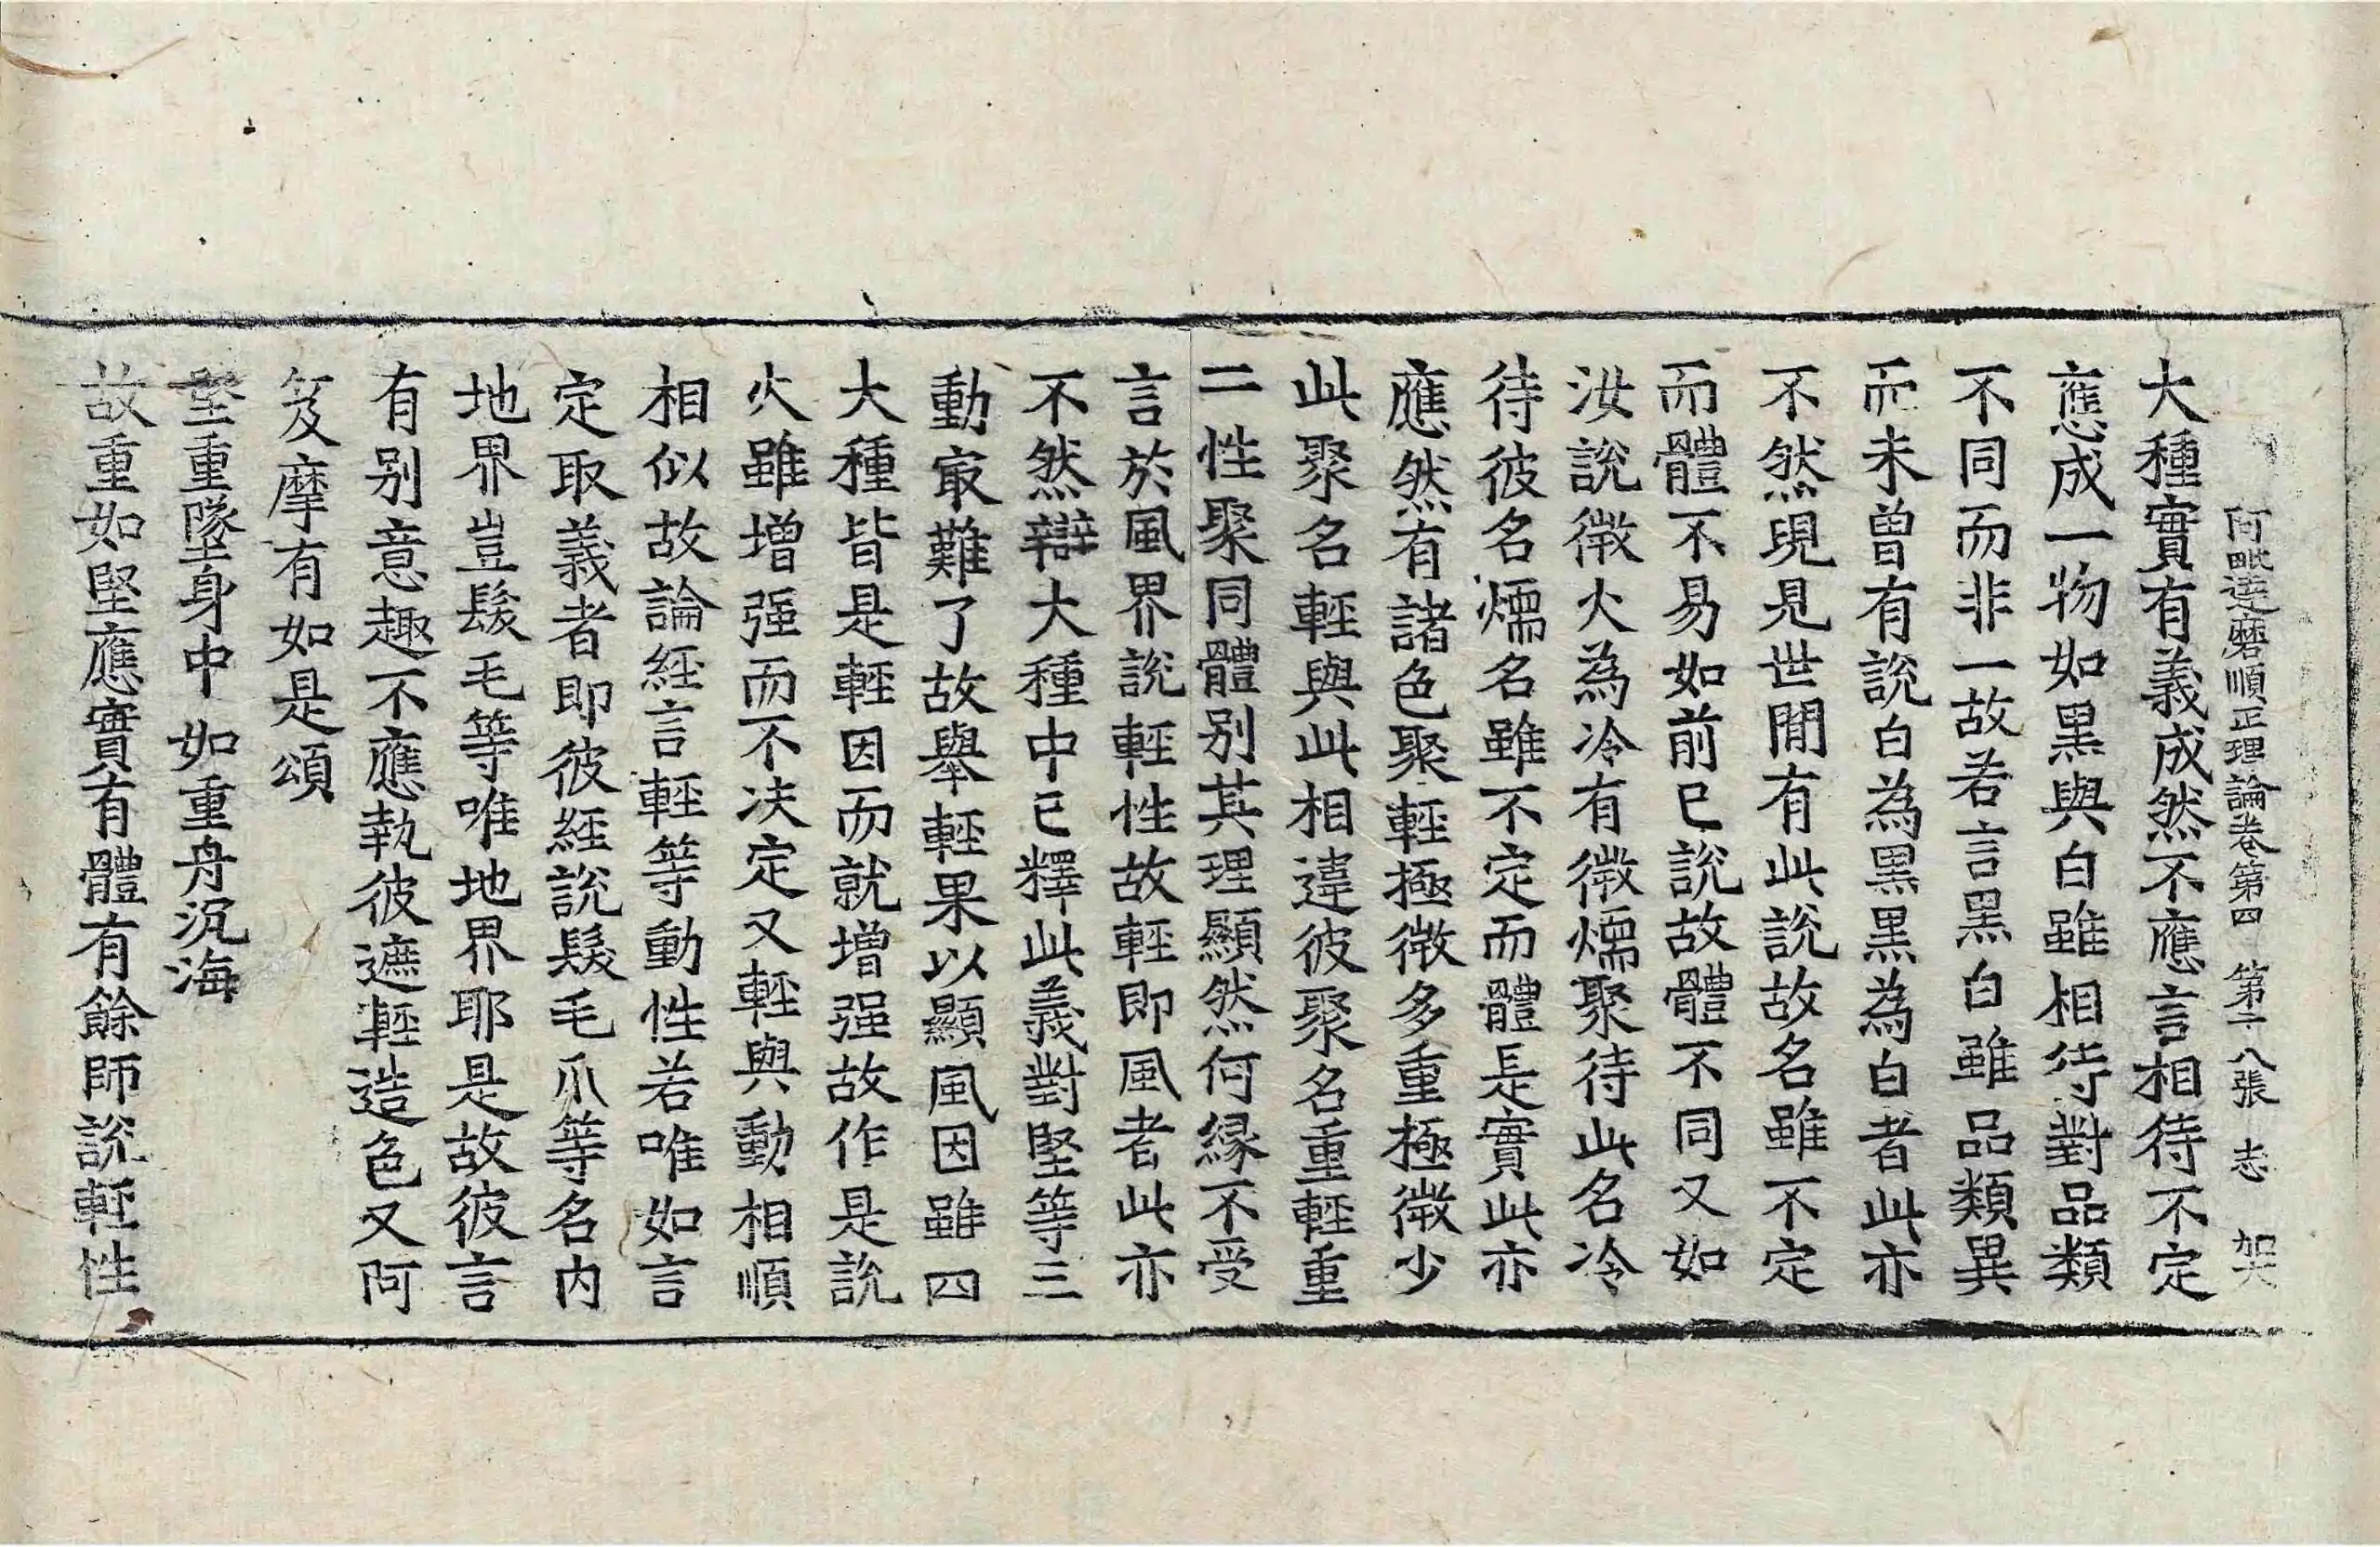 阿毗達磨順正理論卷第四 第二八張 志
大種實有義成然不應言相待不定
應成一物如黑與白雖相待對品類
不同而非一故若言黑白雖品類異
而未曾有說白為黑黑為白者此亦
不然現見世間有此說故名雖不定
而體不易如前已說故體不同又如
汝說微火為冷有微煗聚待此名冷
待彼名煗名雖不定而體是實此亦
應然有諸色聚輕極微多重極微少
此聚名輕與此相違彼聚名重輕重
二性聚同體別其理顯然何緣不受
言於風界說輕性故輕即風者此亦
不然辯大種中已釋此義對堅等三
動㝡難了故舉輕果以顯風因雖四
大種皆是輕因而就增强故作是說
火雖增强而不决定又輕與動相順
相似故論經言輕等動性若唯如言
定取義者即彼經說髮毛爪等名內
地界豈髮毛等唯地界耶是故彼言
有別意趣不應執彼遮輕造色又阿
笈摩有如是頌
堅重墜身中 如重舟沉海
故重如堅應實有體有餘師說輕性